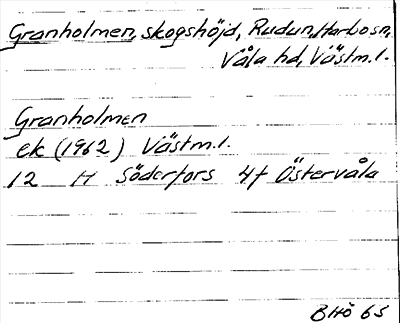 Granholmen, skogshöjd, Rudun, Harbo sn,
Våla hd, Västm.l.
Granholmen
ek (1962) Västm.l.
12 H Söderfors 4f Östervåla
BHö 65